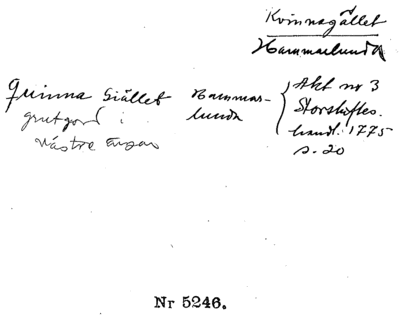 Kvinnagället
Hammarlunda
Quinna Giället Hammar-
lunda
grutgord i
Västre Engar
Akt nr 3
Storskiftes
handl. 1775
s. 20
Nr 5246.